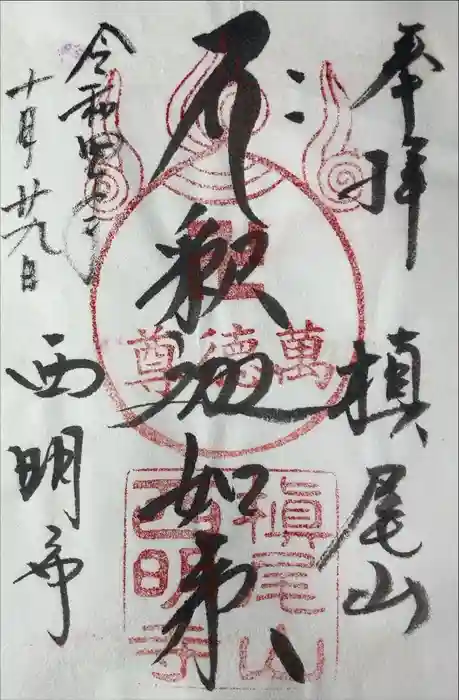 奉拝
槙尾山
釈迦如来
令和四年
十月廿九日
西明寺
萬徳尊
槙尾山
西明寺